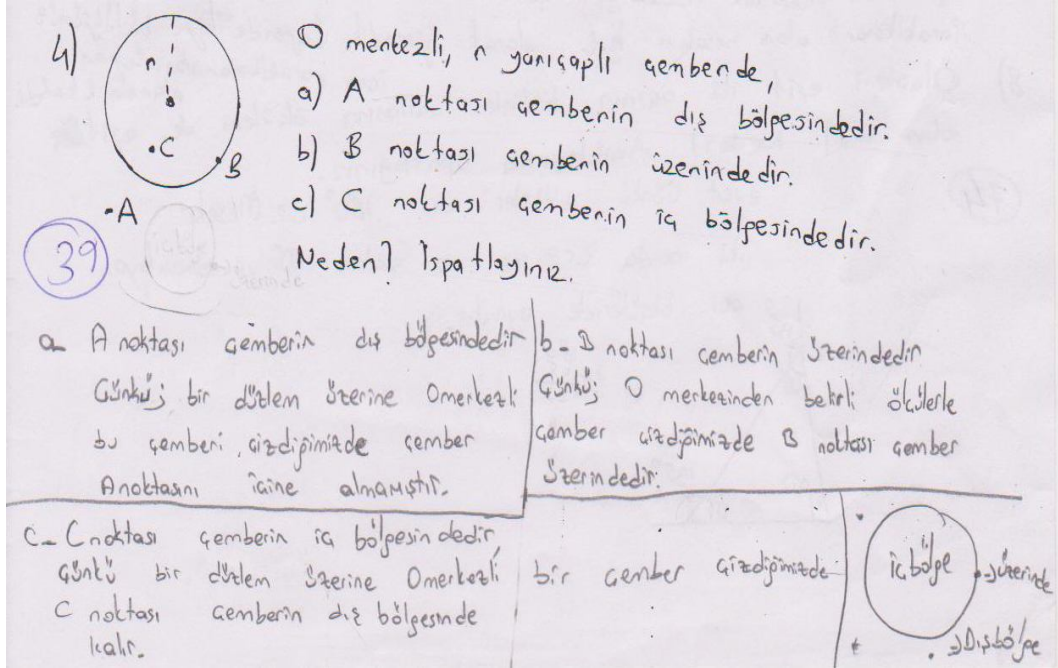 4)
r
C
B
A
O merkezli, r yarıçaplı çemberde,
a) A noktası çemberin dış bölgesindedir.
b) B noktası çemberin üzerindedir.
c) C noktası çemberin iç bölgesindedir.
Neden? İspatlayınız.
39
a- A noktası çemberin dış bölgesindedir
Çünkü; bir düzlem üzerine O merkezli
bu çemberi çizdiğimizde çember
A noktasını içine almamıştır.
b- B noktası çemberin üzerindedir
Çünkü; O merkezinden belirli ölçülerle
çember çizdiğimizde B noktası çember
üzerindedir.
c- C noktası çemberin iç bölgesindedir,
Çünkü bir düzlem üzerine O merkezli bir çember çizdiğimizde
C noktası çemberin dış bölgesinde
kalır.
iç bölge
üzerinde
Dış bölge